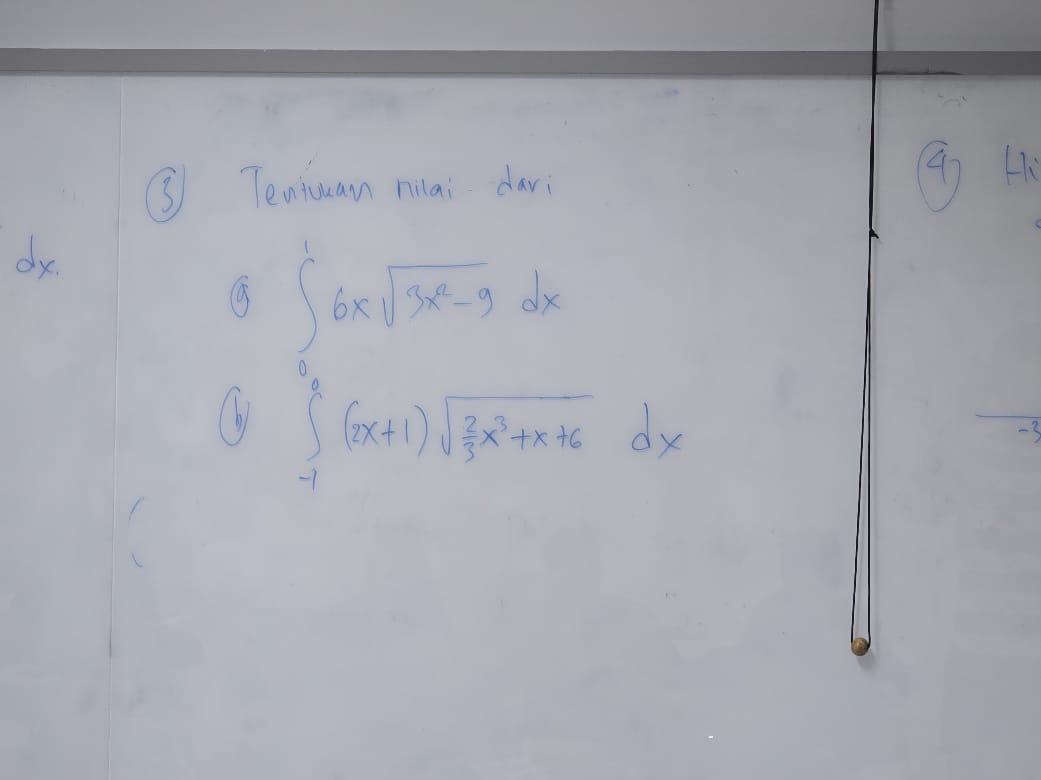 ③ Tentukan nilai dari
dx.
ⓐ ∫₀¹ 6x √(3x²-9) dx
ⓑ ∫₋₁⁰ (2x+1) √(2/3 x³+x+6) dx
④ Hi
-3